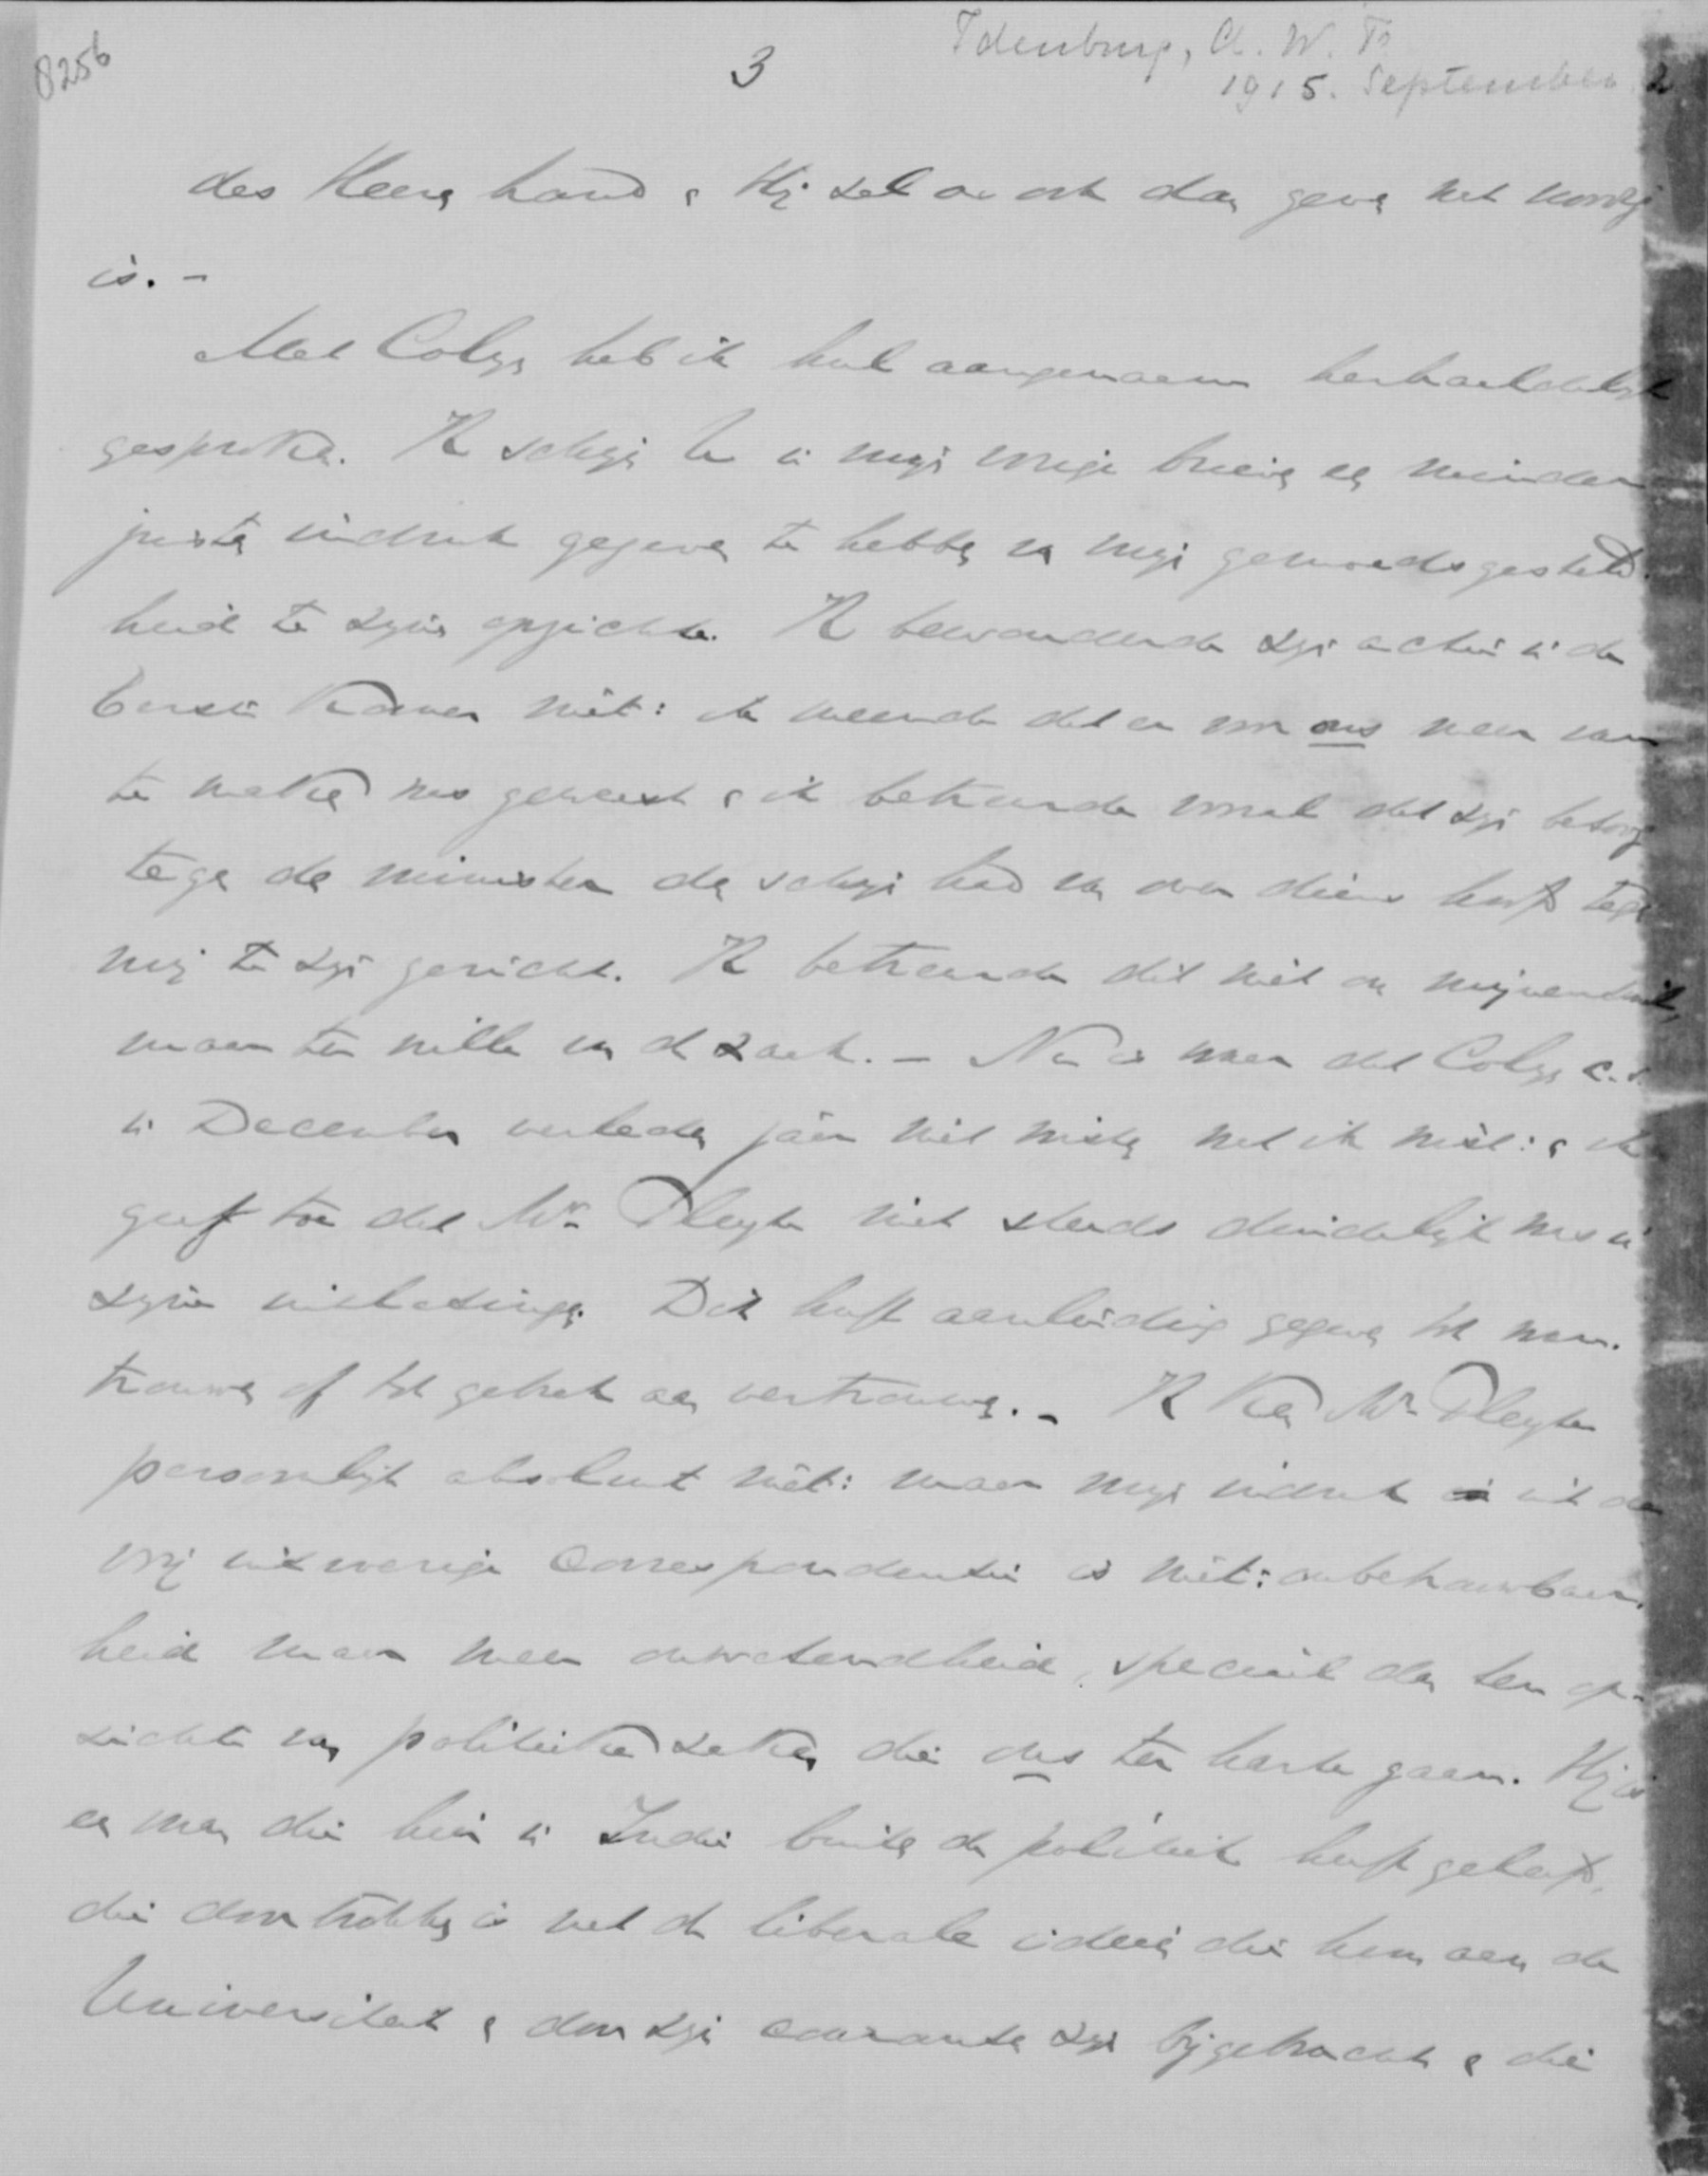 8256
3
Idenburg, A. W. F.
1915. September 2
des Heeren hand & Hij zal ons ook dan geven wat noodig
is. -
Met Colijn heb ik heel aangenaam herhaaldelijk
gesproken. Ik schijn U in mijn vorige brieven een minder
juisten indruk gegeven te hebben van mijn gemoedsgesteld-
heid te zijnen opzichte. Ik bewonderde zijn actie in de
Eerste Kamer niet: ik meende dat er voor ons meer van
te maken was geweest & ik betreurde vooral dat zijn betoog
tegen den minister den schijn had van over diens hoofd tegen
mij te zijn gericht. Ik betreurde dit niet om mijnentwil,
maar ter wille van de zaak. - Nu is waar dat Colijn c.s.
in December verleden jaar niet wisten wat ik wist: & ik
geef toe dat Mr. Pleyte niet steeds duidelijk was in
zijne uitlatingen. Dit heeft aanleiding gegeven tot wan-
trouwen of tot gebrek aan vertrouwen. - Ik ken Mr. Pleyte
persoonlijk absoluut niet: maar mijn indruk uit de
vrij uitvoerige correspondentie is niet: onbetrouwbaar-
heid maar meer onwetendheid, speciaal dan ten op-
zichte van politieke zaken die ons ter harte gaan. Hij is
een man die hier in Indië buiten de politiek heeft geleefd,
die doortrokken is met de liberale ideeën die hem aan de
Universiteit & door zijn couranten zijn bijgebracht & die